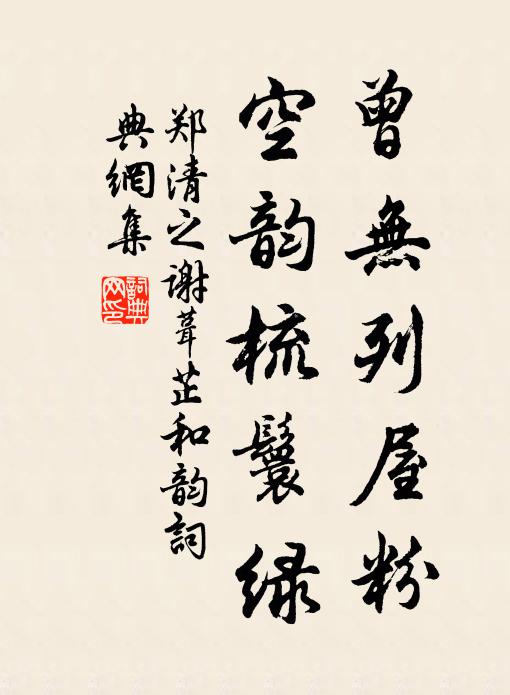 曾無列屋粉
空韵梳鬟绿
郑清之谢葺芷和韵詞
典網集
詞典
网印